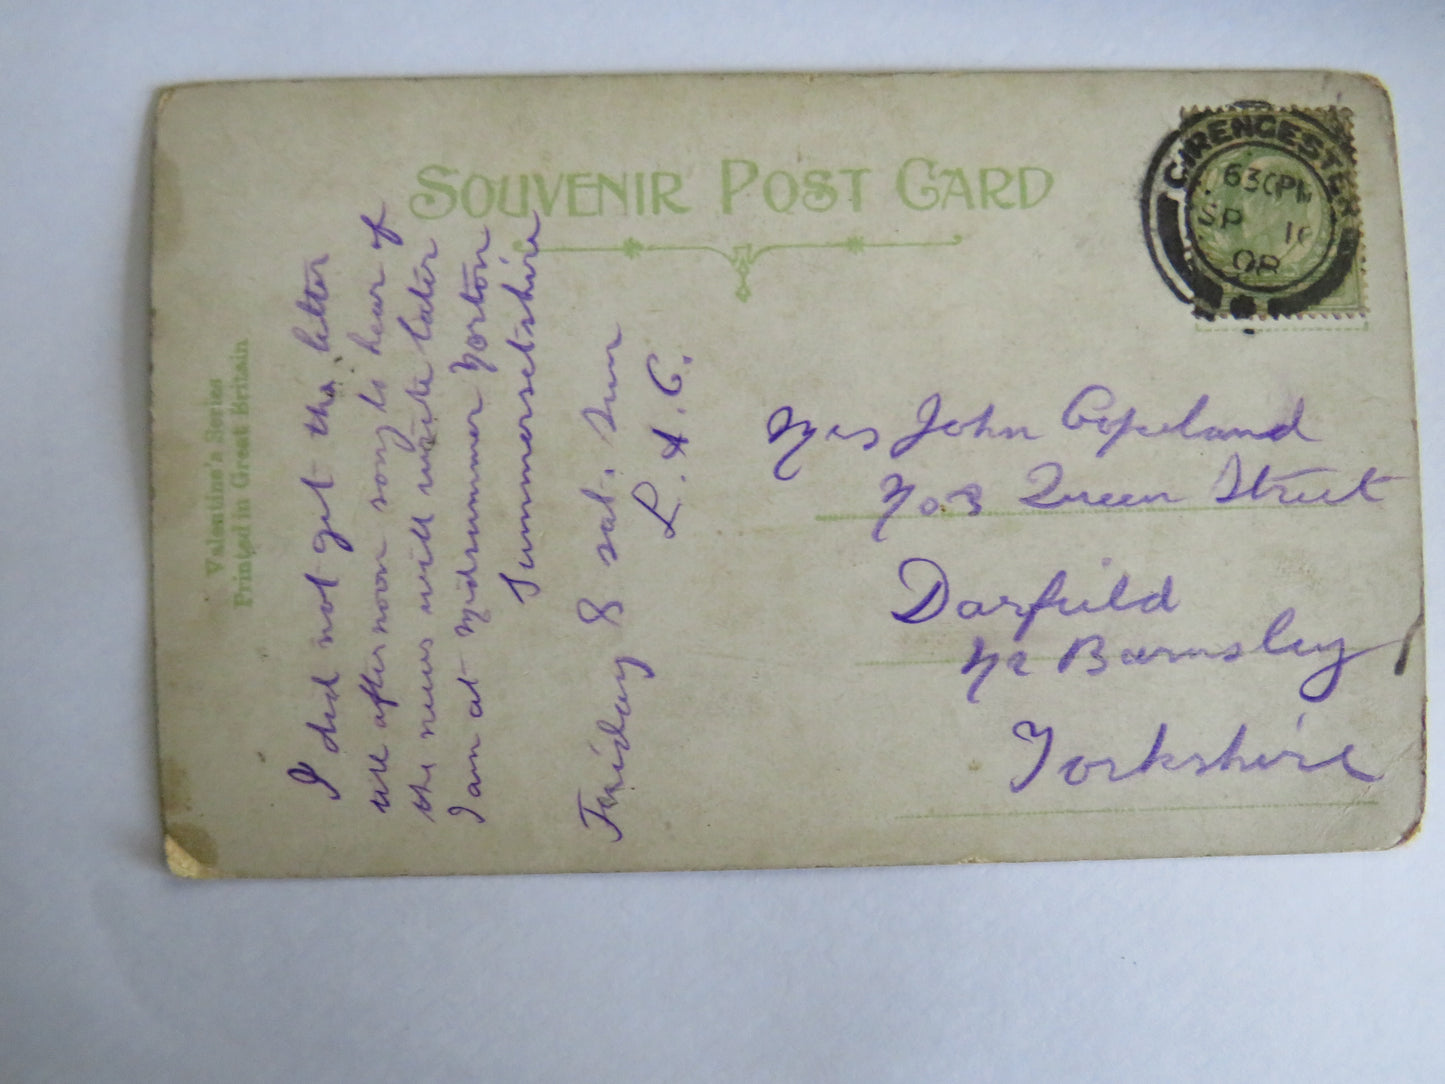 SOUVENIR POST CARD
CIRENCESTER
630PM
SP 10
08
Valentine's Series
Printed in Great Britain
I did not get the letter
till afternoon sorry to hear of
the news will write later
I am at Midsummer Norton
Summersetshire
Friday & sat. Sun
L. A. C.
Mrs John Copeland
No 3 Queen Street
Darfield
Nr Barnsley
Yorkshire